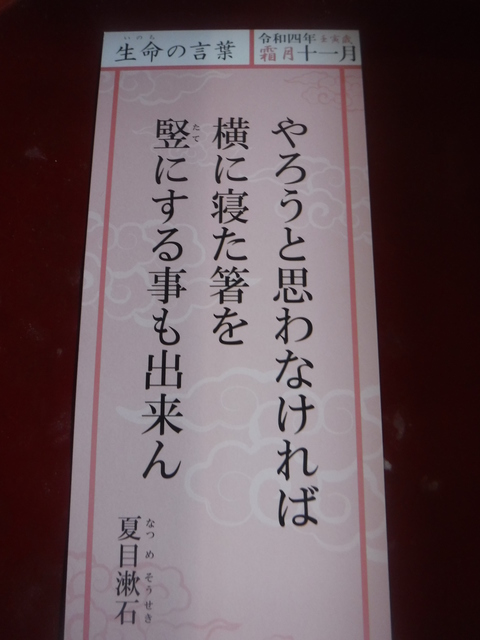 生命の言葉
いのち
令和四年 壬寅歳
霜月 十一月
やろうと思わなければ
横に寝た箸を
竪にする事も出来ん
たて
夏目漱石
なつめ そうせき